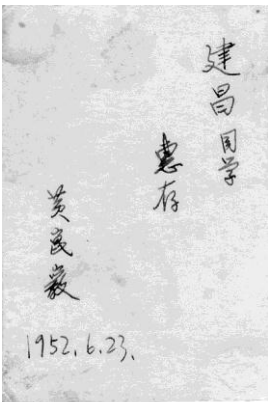 建昌同学
惠存
黄宸嚴
1952.6.23.